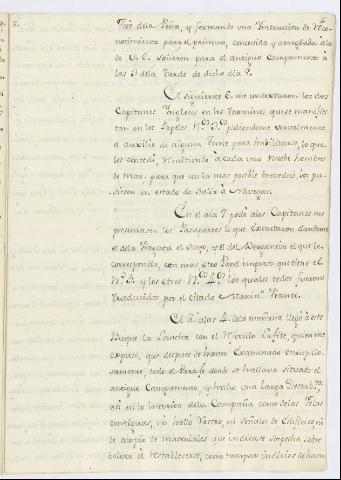 Jose dela Peña, y formando una Instruccion de Reconocimiento para el primero, concevida y arreglada ala
de S. E. salieron para el antiguo Campamento á
las 3 dela tarde de dicho dia 5.
El siguiente 6. me contextaron los dos
Capitanes Ingleses en los terminos que se manifies
tan en los Papeles Nº 3º pidiendome verbalmente
el auxilio de alguna Gente para havilitarse, lo que
les concedi, remitiendo á cada uno nueve hombres
de Mar, para que con la mas posible brevedad, los pu-
siesen en estado de Salir á Navegar.
En el dia 7 pedi alos Capitanes me
presentasen los Pasaportes lo que executaron dandome
el dela Fragata el Suyo, y el del Bergantin el que le
correspondia, con mas otro Papel impreso que tiene el
Nº 5. y los otros Nº 4º los quales todos fueron
traducidos por el citado Marinº Frances.
El 8. alas 4. dela mañana llegó á este
Buque la Lancha con el referido Lafite, quien me
expuso, que despues de haver Examinado escrupulo-
samente, todo el Parage donde se hallava situado el
antiguo Campamento, y hecho una larga Descubta
asi en lo interior dela Campaña como delas Yslas
contiguas, no halló rastro, ni señales de Edificios ni
de acopio de materiales que indicase sospecha sobre
bolver á restablecerse, como tampoco indicios de haver